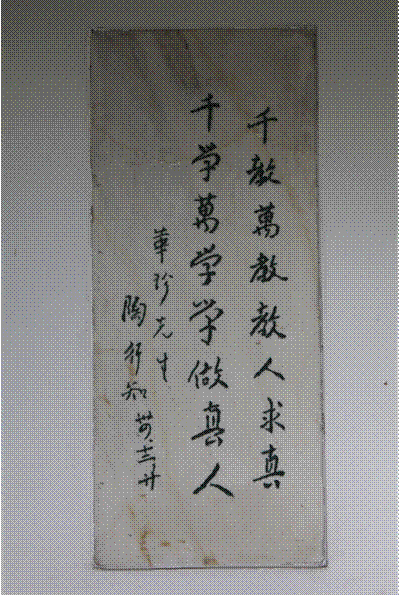 千教萬教教人求真
千学萬学学做真人
華珍先生
陶行知